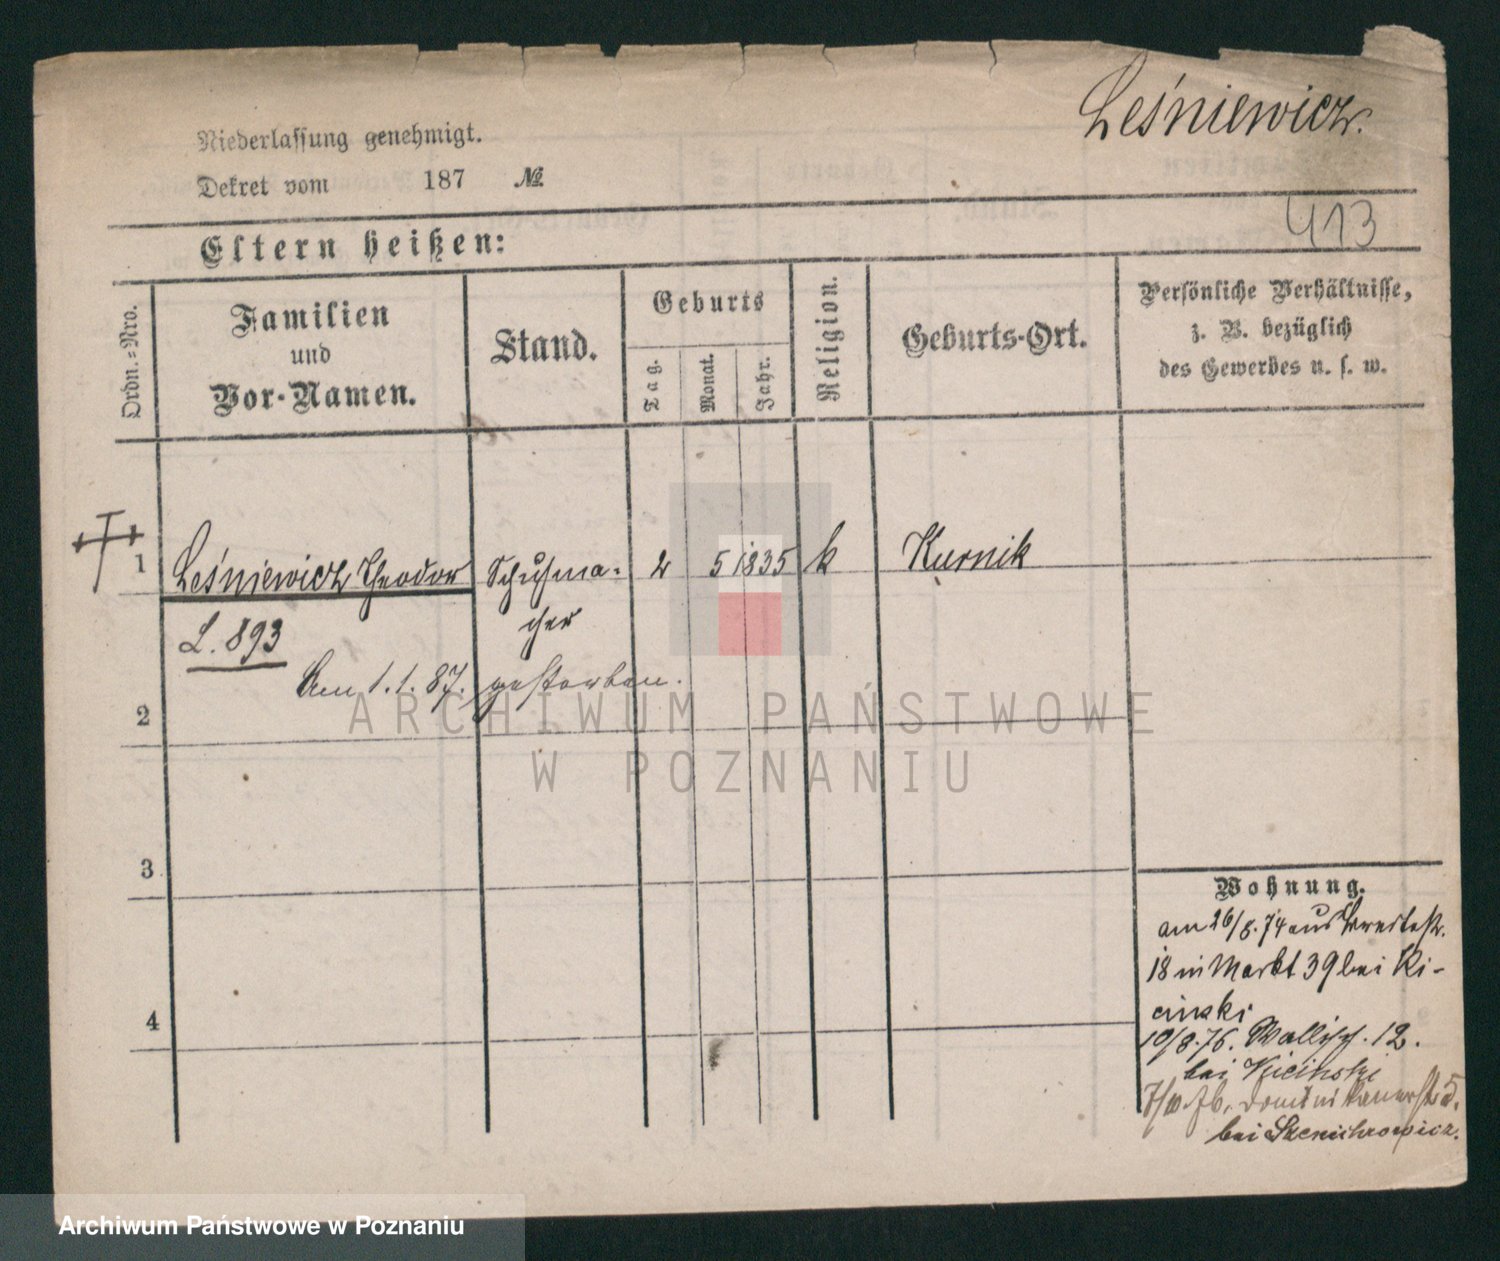 Leśniewicz.
Niederlassung genehmigt.
Dekret vom 187 №
413
Eltern heißen:
Ordn.=Nro.
Familien
und
Vor-Namen.
Stand.
Geburts
Tag.
Monat.
Jahr.
Religion.
Geburts-Ort.
Persönliche Verhältnisse,
z. B. bezüglich
des Gewerbes u. s. w.
1 Leśniewicz Theodor Schuhma- 2 5 1835 k Kurnik
cher
L. 893
Am 1.1.87. gestorben.
2
3
4
Wohnung.
am 26/8.74 aus Breitestr.
18 in Markt 39 bei Ki-
cinski
10/8.76. Wallisch. 12.
bei Kicinski
7/10.76. Dominikanerstr 5.
bei
ARCHIWUM PAŃSTWOWE
W POZNANIU
Archiwum Państwowe w Poznaniu